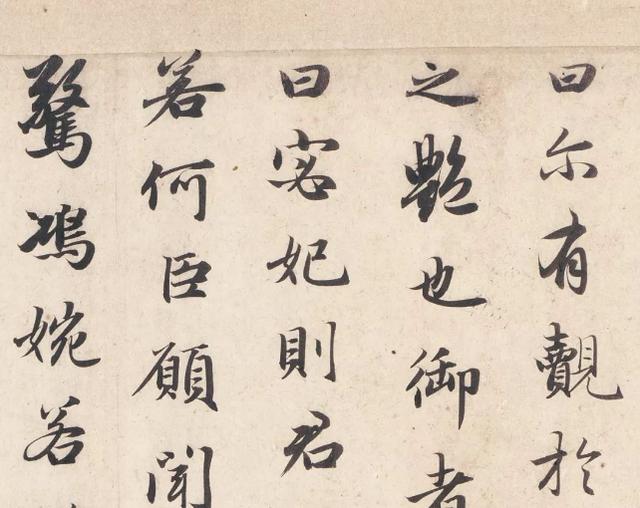 曰尒有覿於
之艷也御者
曰宓妃則君
若何臣願聞
驚鴻婉若